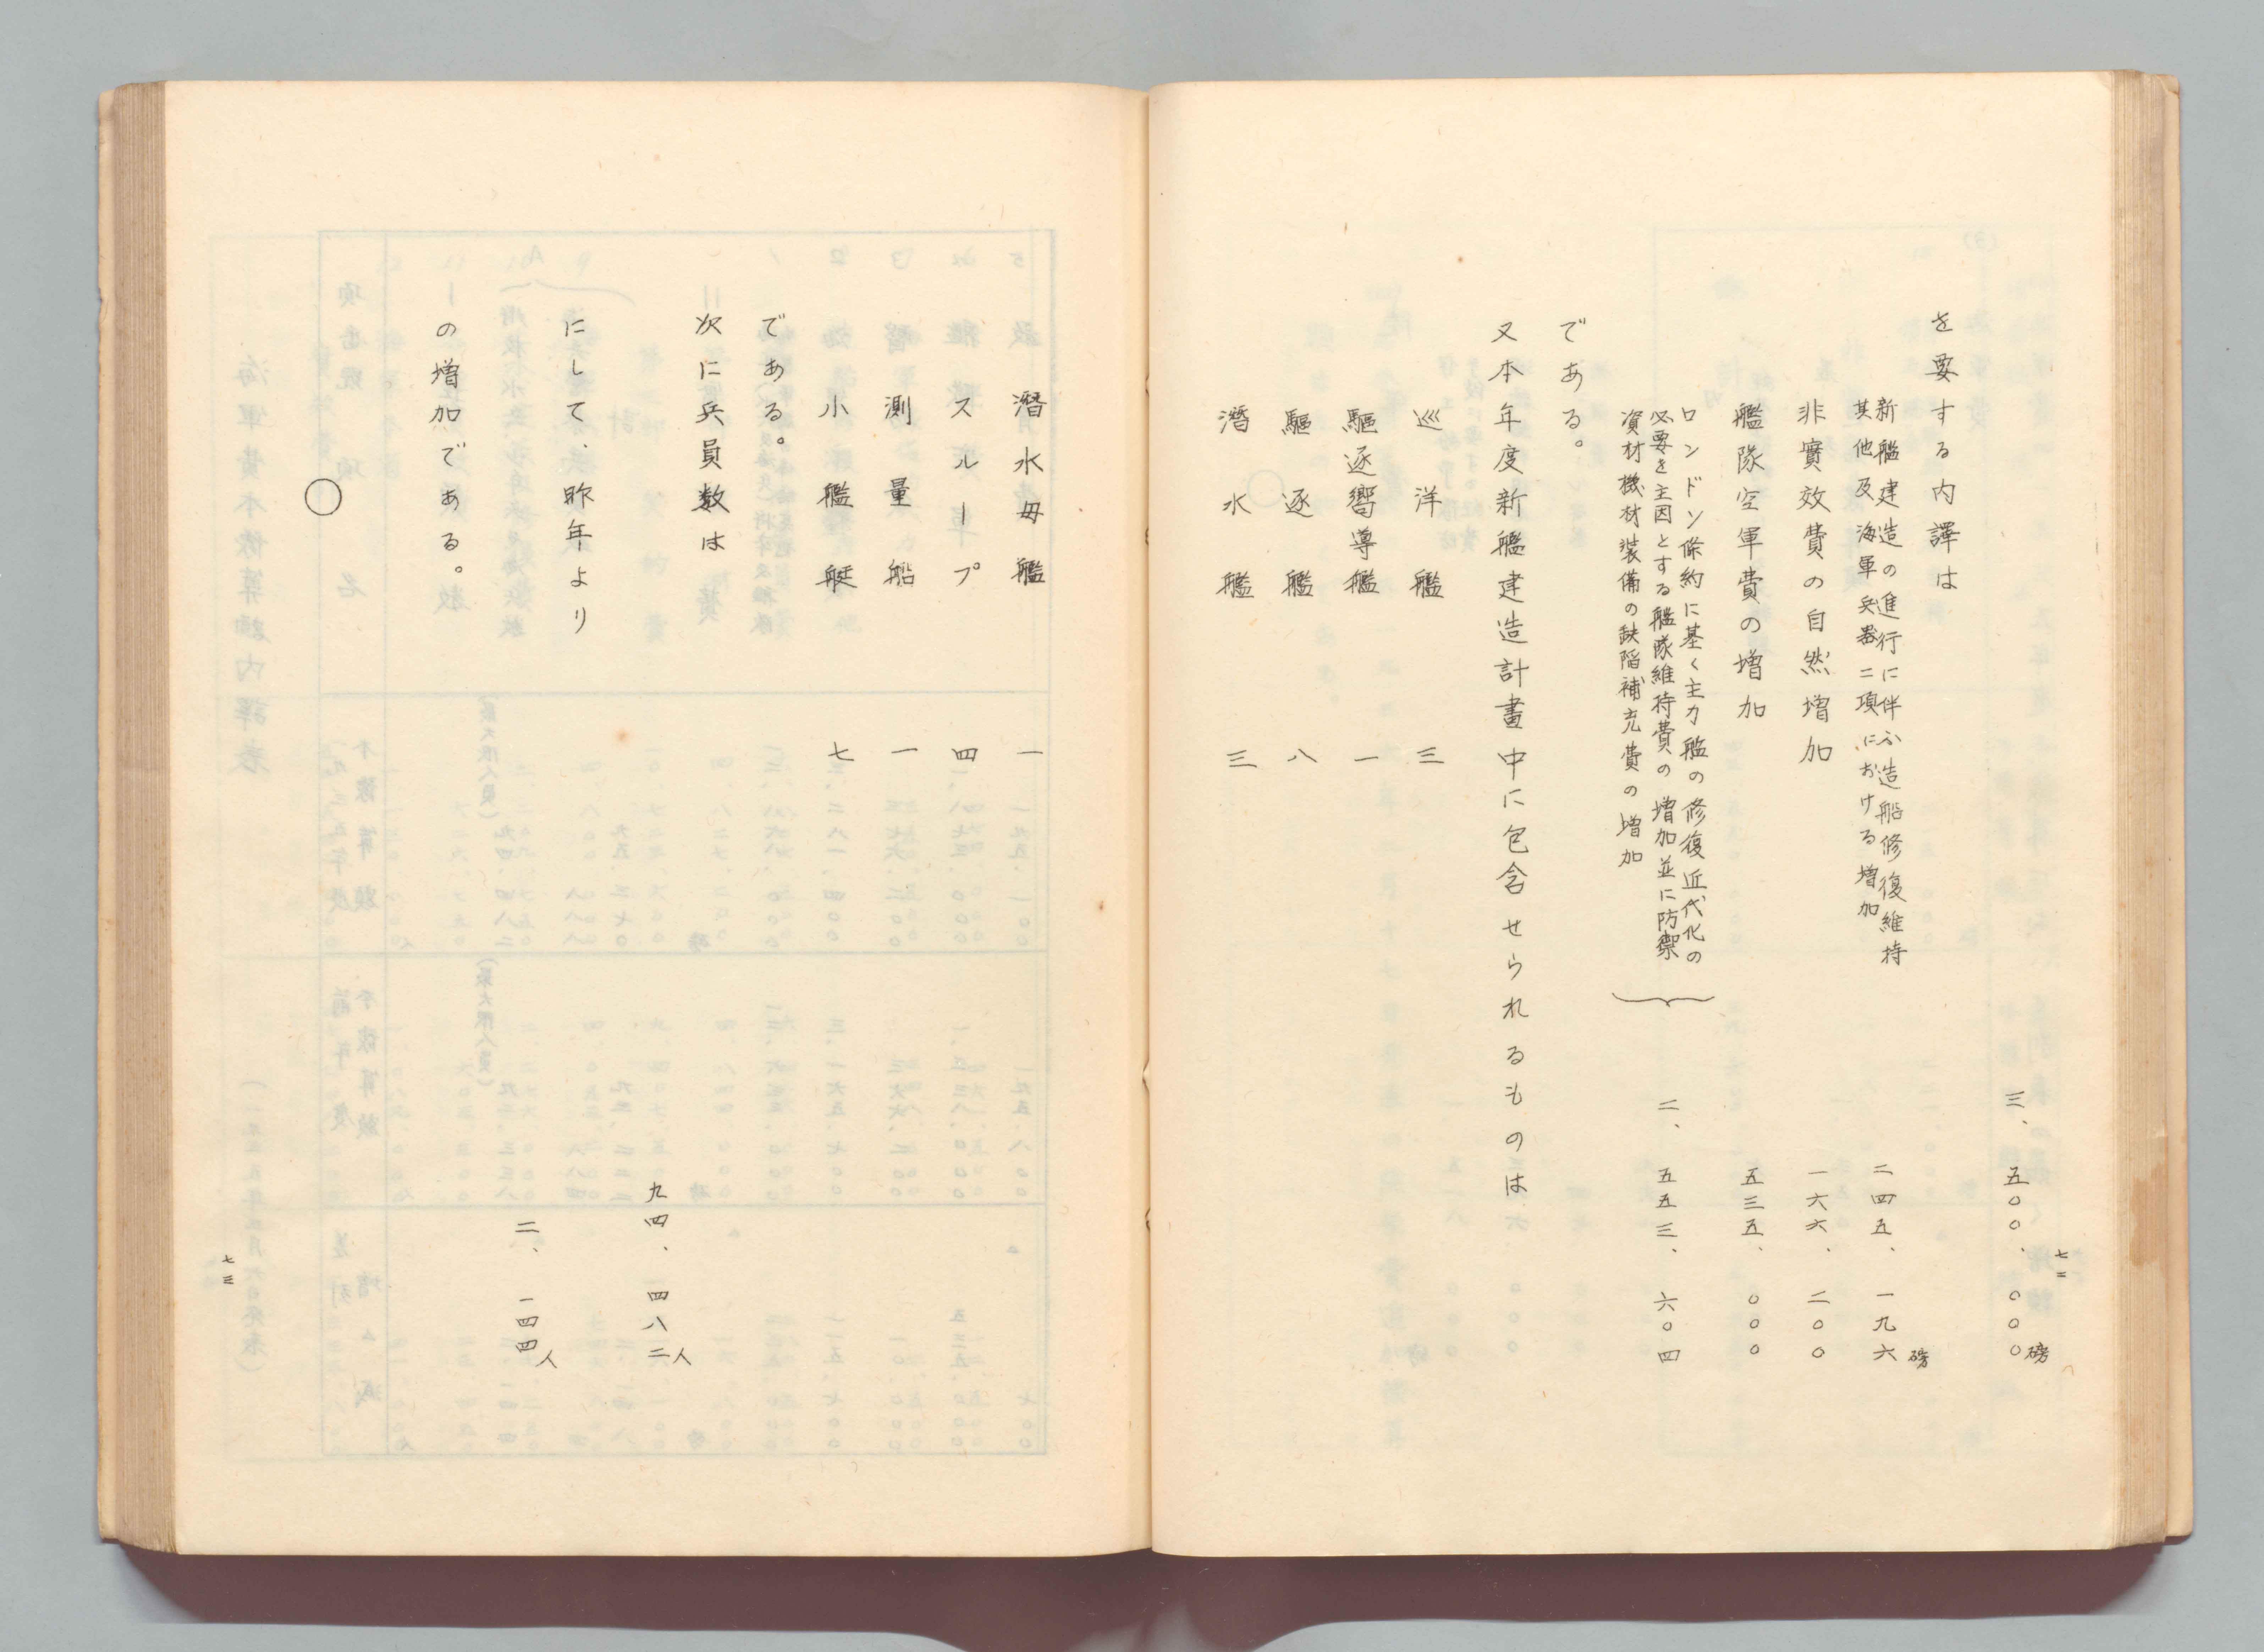 三、五〇〇、〇〇〇磅
を要する内譯は
新艦建造の進行に伴ふ造船修復維持
其他及海軍兵器二項における増加
二四五、一九六磅
非實效費の自然増加 一六六、二〇〇
艦隊空軍費の増加 五三五、〇〇〇
ロンドン條約に基く主力艦の修復近代化の
必要を主因とする艦隊維持費の増加並に防禦
資材機材装備の缺陥補充費の増加
二、五五三、六〇四
である。
又本年度新艦建造計畫中に包含せられるものは
巡洋艦 三
驅逐嚮導艦 一
驅逐艦 八
潛水艦 三
七二
潛水母艦 一
スループ 四
測量船 一
小艦艇 七
である。
次に兵員数は
九四、四八二人
にして、昨年より
二、一四四人
の増加である。
〇
七三